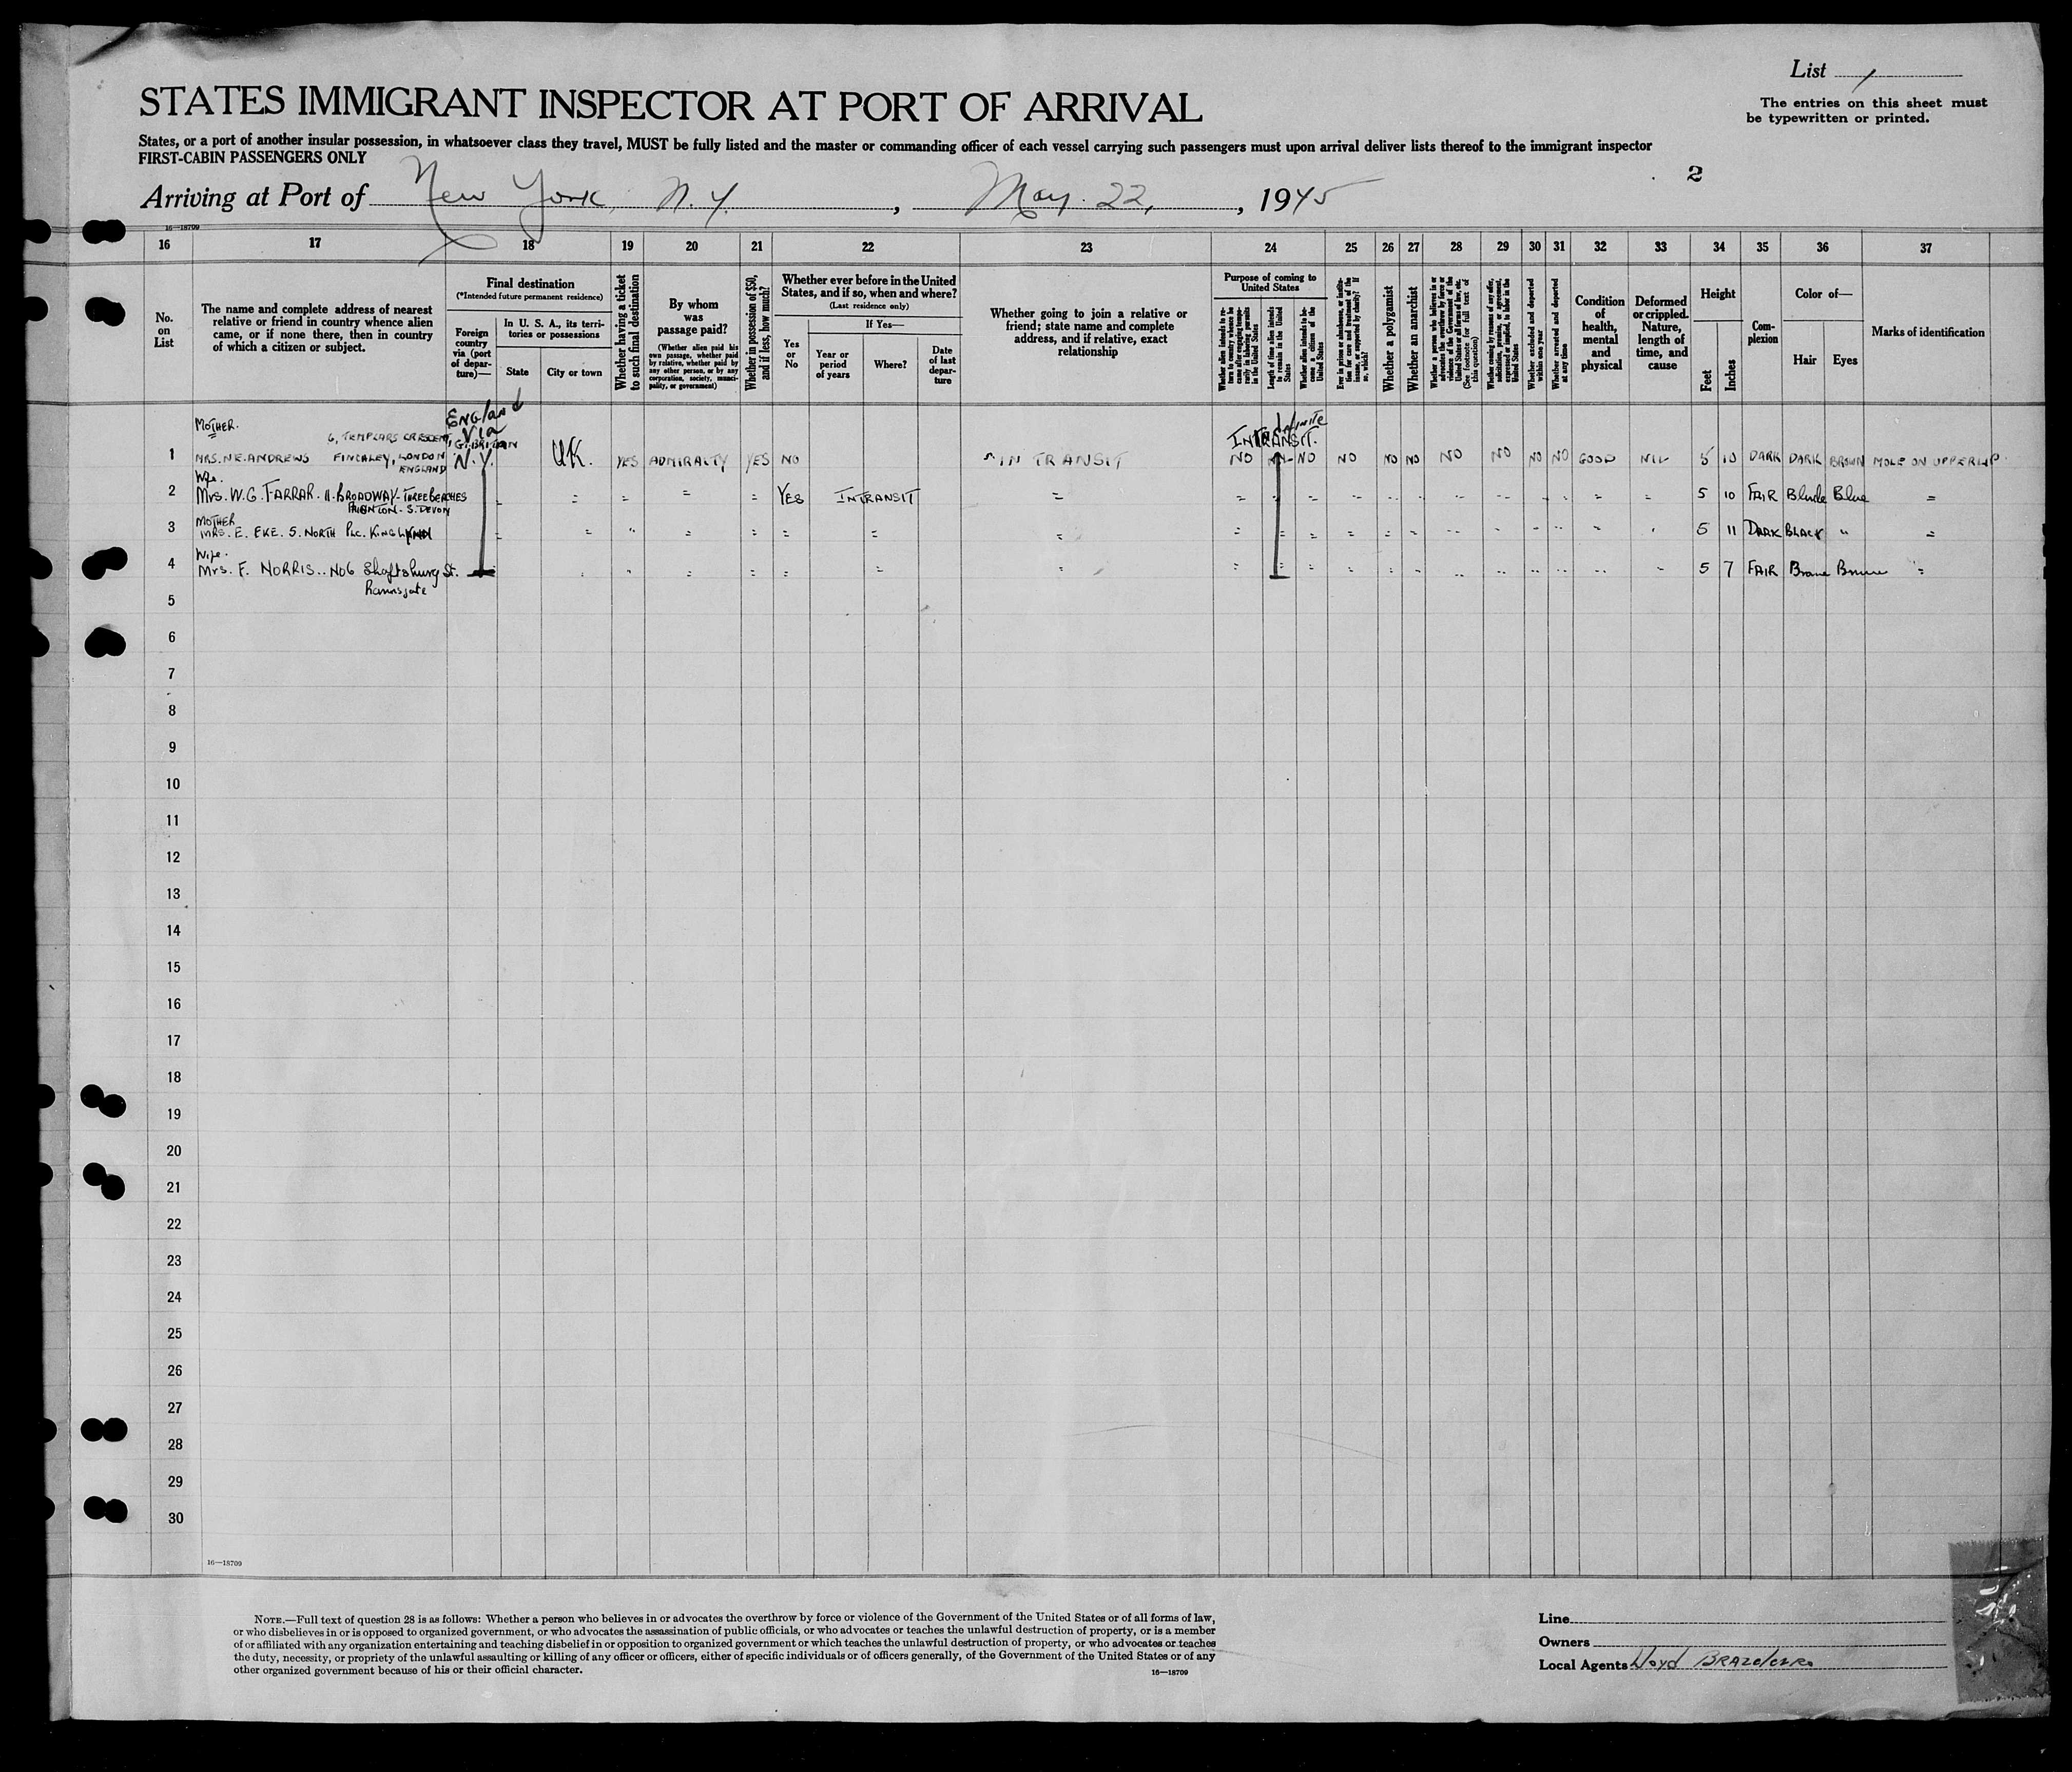 List 1
The entries on this sheet must
be typewritten or printed.
STATES IMMIGRANT INSPECTOR AT PORT OF ARRIVAL
States, or a port of another insular possession, in whatsoever class they travel, MUST be fully listed and the master or commanding officer of each vessel carrying such passengers must upon arrival deliver lists thereof to the immigrant inspector
FIRST-CABIN PASSENGERS ONLY
2
Arriving at Port of New York, N.Y. , May 22, , 1945
16—18709
16 17 18 19 20 21 22 23 24 25 26 27 28 29 30 31 32 33 34 35 36 37
No. on List
The name and complete address of nearest
relative or friend in country whence alien
came, or if none there, then in country
of which a citizen or subject.
Final destination
(*Intended future permanent residence)
Foreign country via (port of depar-ture)—
In U. S. A., its terri-tories or possessions
State
City or town
Whether having a ticket to such final destination
By whom was passage paid?
(Whether alien paid his own passage, whether paid by relative, whether paid by any other person, or by any corporation, society, munici-pality, or government)
Whether in possession of $50, and if less, how much?
Whether ever before in the United States, and if so, when and where?
(Last residence only)
Yes or No
If Yes—
Year or period of years
Where?
Date of last depar-ture
Whether going to join a relative or
friend; state name and complete
address, and if relative, exact
relationship
Purpose of coming to United States
Length of time alien intends to remain in the United States
Whether alien intends to be-come a citizen of the United States
Whether a polygamist
Whether an anarchist
(See footnote for full text of this question)
Whether excluded and deported within one year
Whether arrested and deported at any time
Condition of health, mental and physical
Deformed or crippled. Nature, length of time, and cause
Height
Feet
Inches
Com-plexion
Color of—
Hair
Eyes
Marks of identification
MOTHER. England via G. BRITAIN N.Y. INTRANSIT.
6, TEMPLARS CRESCENT,
1 MRS. N.E. ANDREWS FINCHLEY, LONDON ENGLAND U.K. YES ADMIRALTY YES NO IN TRANSIT NO NO NO NO NO NO NO NO NO GOOD NIL 5 10 DARK DARK BROWN MOLE ON UPPER LIP
Wife.
2 Mrs. W.G. FARRAR. 11. BROADWAY. THREE BEACHES " " " " YES INTRANSIT " " " " " " " " " " " " " 5 10 FAIR Blonde Blue "
PAIGNTON. S. DEVON
MOTHER
3 MRS. E. EKE. 5. NORTH PLC. KINGLYNN " " " " " " " " " " " " " " " " " " " 5 11 DARK BLACK " "
Wife.
4 Mrs. F. NORRIS.. No6 Shaftsburg St. " " " " " " " " " " " " " " " " " " " 5 7 FAIR Brown Brown "
Ramsgate
5
6
7
8
9
10
11
12
13
14
15
16
17
18
19
20
21
22
23
24
25
26
27
28
29
30
16—18709
NOTE.—Full text of question 28 is as follows: Whether a person who believes in or advocates the overthrow by force or violence of the Government of the United States or of all forms of law,
or who disbelieves in or is opposed to organized government, or who advocates the assassination of public officials, or who advocates or teaches the unlawful destruction of property, or is a member
of or affiliated with any organization entertaining and teaching disbelief in or opposition to organized government or which teaches the unlawful destruction of property, or who advocates or teaches
the duty, necessity, or propriety of the unlawful assaulting or killing of any officer or officers, either of specific individuals or of officers generally, of the Government of the United States or of any
other organized government because of his or their official character.
16—18709
Line
Owners
Local Agents Lloyd